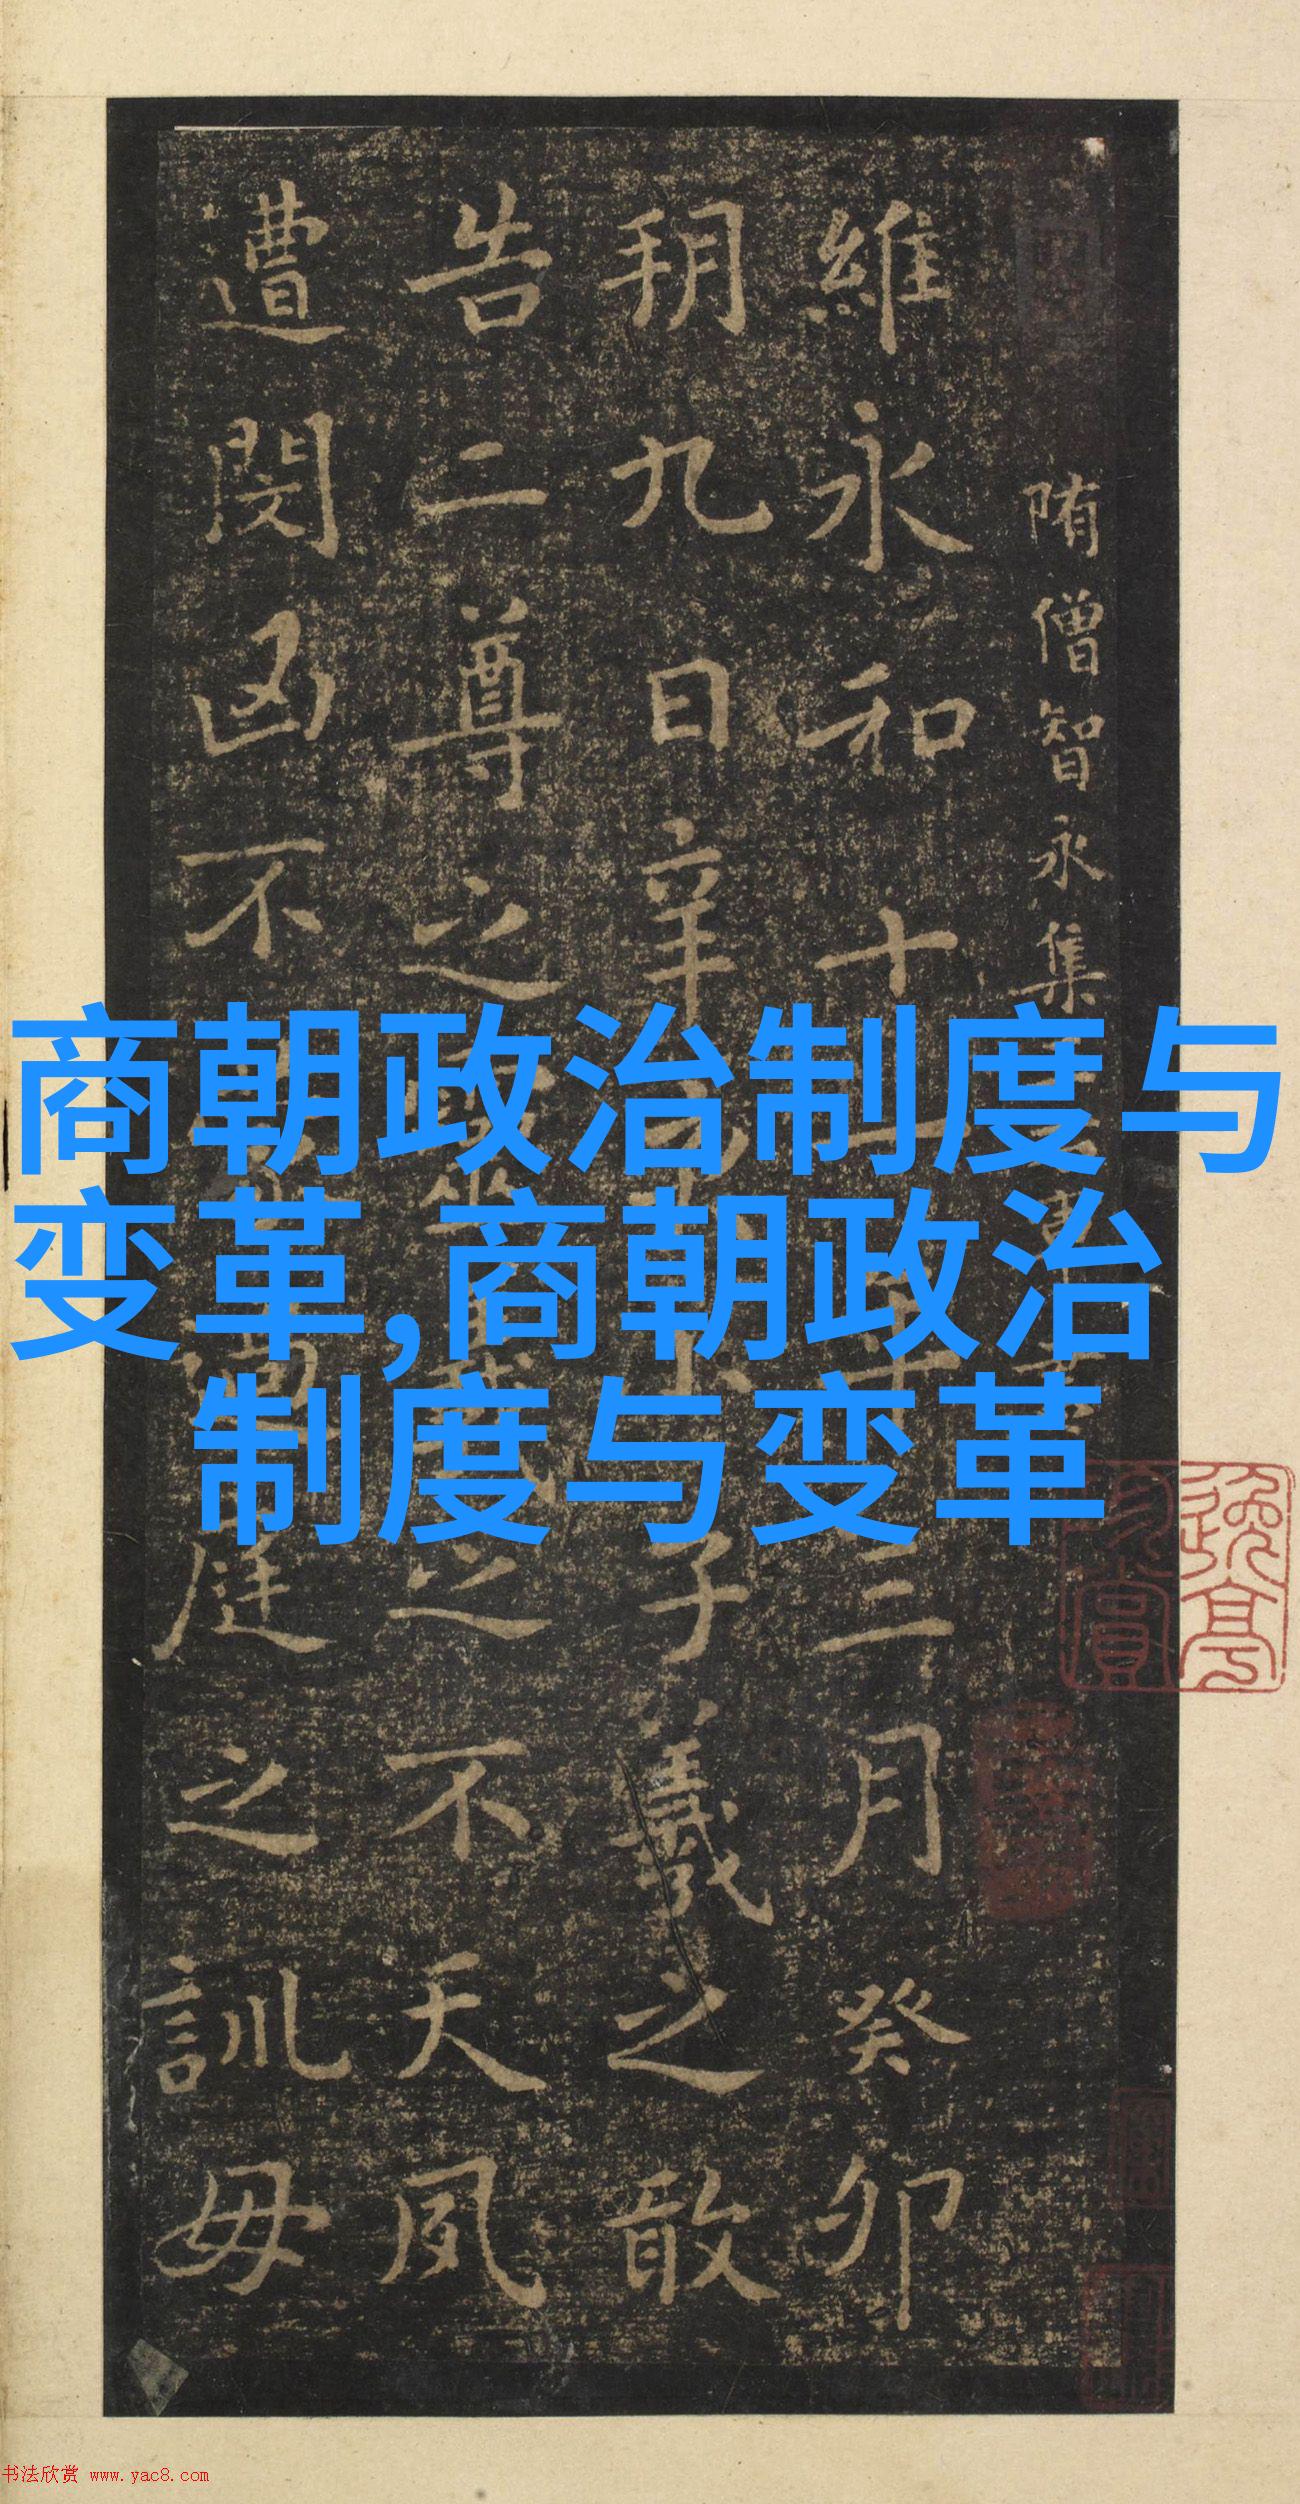 商朝政治制度与
变革,商朝政治
制度与变革
隋僧智永集
維永和十三月癸卯
朔九日辛子羲之敢
告二尊之之不天夙
遭閔凶不庭之訓毋
书法欣赏 www.yac8.com